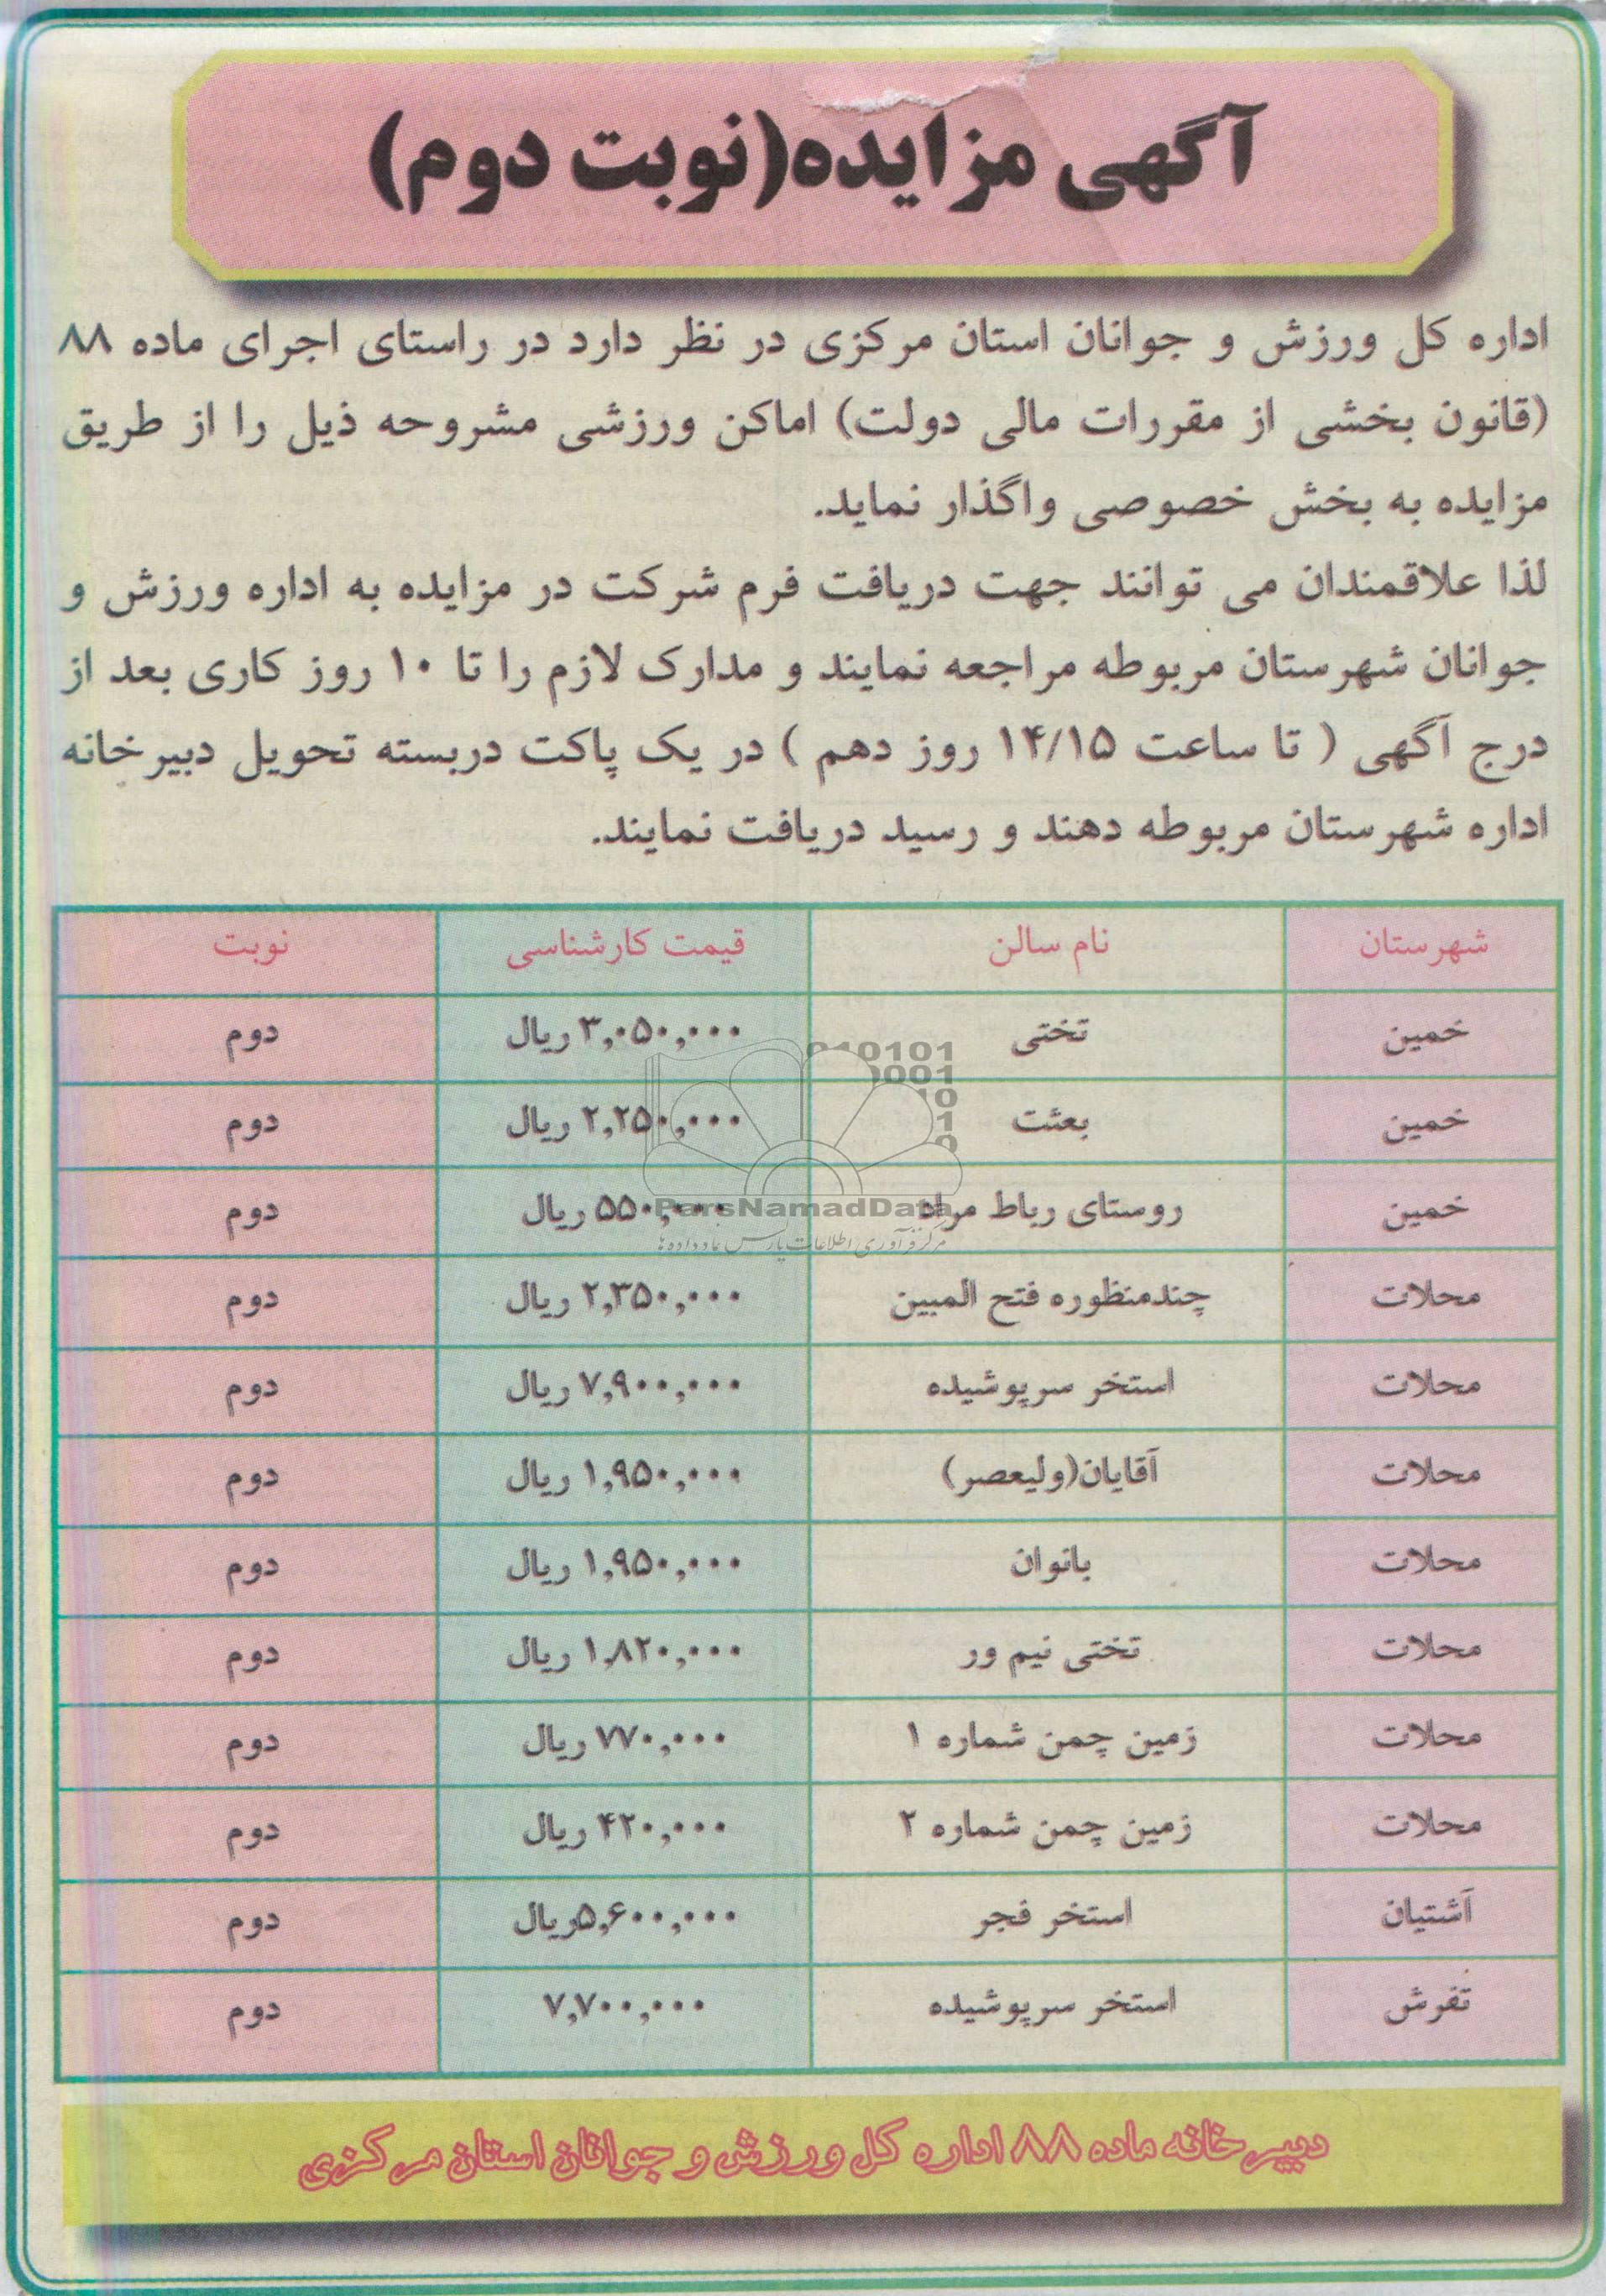 آگهی مزایده(نوبت دوم)
اداره کل ورزش و جوانان استان مرکزی در نظر دارد در راستای اجرای ماده ۸۸
(قانون بخشی از مقررات مالی دولت) اماکن ورزشی مشروحه ذیل را از طریق
مزایده به بخش خصوصی واگذار نماید.
لذا علاقمندان می توانند جهت دریافت فرم شرکت در مزایده به اداره ورزش و
جوانان شهرستان مربوطه مراجعه نمایند و مدارک لازم را تا ۱۰ روز کاری بعد از
درج آگهی ( تا ساعت ۱۴/۱۵ روز دهم ) در یک پاکت دربسته تحویل دبیرخانه
اداره شهرستان مربوطه دهند و رسید دریافت نمایند.
شهرستان نام سالن قیمت کارشناسی نوبت
خمین تختی ۳,۰۵۰,۰۰۰ ریال دوم
خمین بعثت ۲,۲۵۰,۰۰۰ ریال دوم
خمین روستای رباط مراد ۵۵۰,۰۰۰ ریال دوم
محلات چندمنظوره فتح المبین ۲,۳۵۰,۰۰۰ ریال دوم
محلات استخر سرپوشیده ۷,۹۰۰,۰۰۰ ریال دوم
محلات آقایان(ولیعصر) ۱,۹۵۰,۰۰۰ ریال دوم
محلات بانوان ۱,۹۵۰,۰۰۰ ریال دوم
محلات تختی نیم ور ۱,۸۲۰,۰۰۰ ریال دوم
محلات زمین چمن شماره ۱ ۷۷۰,۰۰۰ ریال دوم
محلات زمین چمن شماره ۲ ۴۲۰,۰۰۰ ریال دوم
آشتیان استخر فجر ۵,۶۰۰,۰۰۰ریال دوم
تفرش استخر سرپوشیده ۷,۷۰۰,۰۰۰ دوم
ParsNamadData
مرکز فرآوری اطلاعات پارس نماد داده ها
دبیرخانه ماده ۸۸ اداره کل ورزش و جوانان استان مرکزی